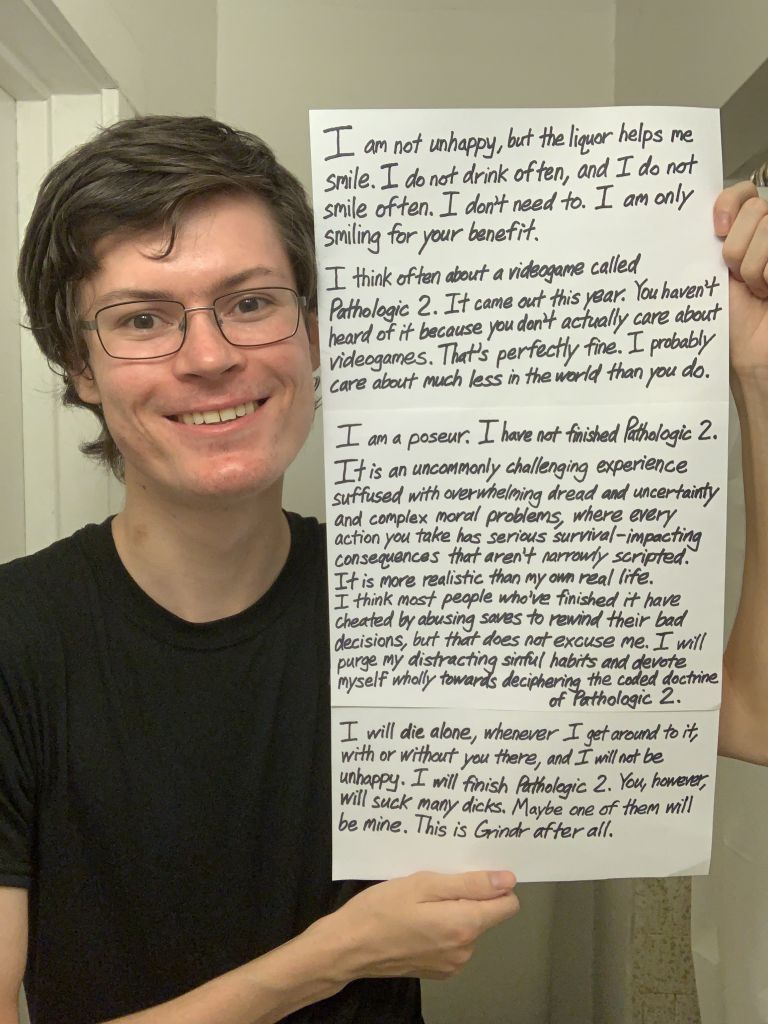 I am not unhappy, but the liquor helps me
smile. I do not drink often, and I do not
smile often. I don't need to. I am only
smiling for your benefit.
I think often about a videogame called
Pathologic 2. It came out this year. You haven't
heard of it because you don't actually care about
videogames. That's perfectly fine. I probably
care about much less in the world than you do.
I am a poseur. I have not finished Pathologic 2.
It is an uncommonly challenging experience
suffused with overwhelming dread and uncertainty
and complex moral problems, where every
action you take has serious survival-impacting
consequences that aren't narrowly scripted.
It is more realistic than my own real life.
I think most people who've finished it have
cheated by abusing saves to rewind their bad
decisions, but that does not excuse me. I will
purge my distracting sinful habits and devote
myself wholly towards deciphering the coded doctrine
of Pathologic 2.
I will die alone, whenever I get around to it,
with or without you there, and I will not be
unhappy. I will finish Pathologic 2. You, however,
will suck many dicks. Maybe one of them will
be mine. This is Grindr after all.